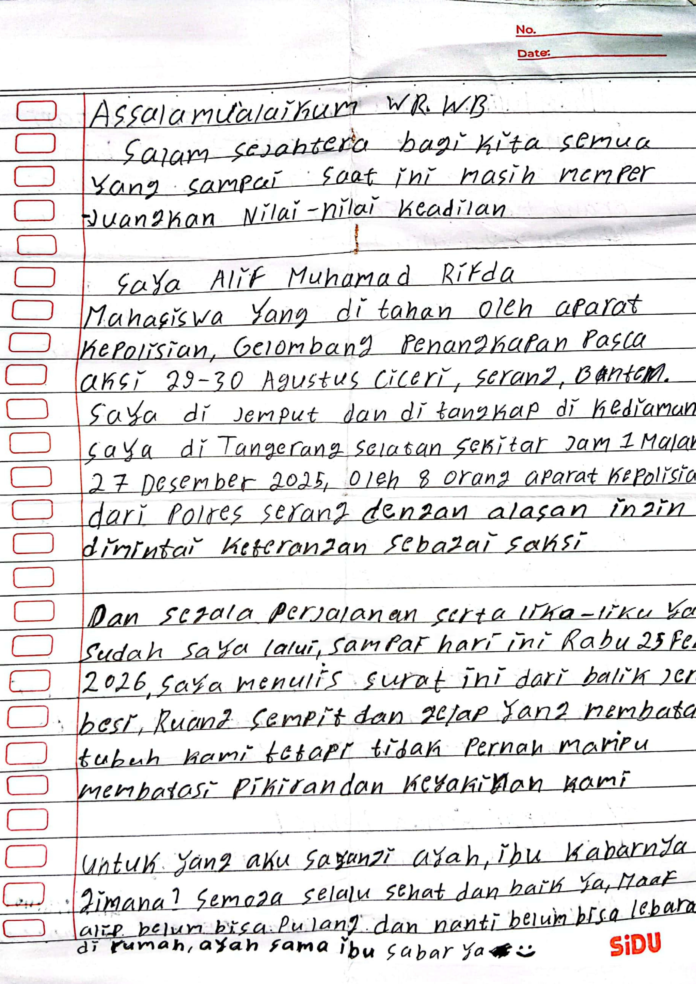 No.
Date:
Assalamu'alaikum WR.WB
Salam sejahtera bagi kita semua
yang sampai saat ini masih memper
-juangkan Nilai-nilai keadilan
saya Alif Muhamad Rifda
Mahasiswa yang di tahan oleh aparat
kepolisian, Gelombang penangkapan Pasca
aksi 29-30 Agustus Ciceri, serang, Banten.
saya di jemput dan di tangkap di kediaman
saya di Tangerang selatan sekitar jam 1 Malam
27 Desember 2025, oleh 8 orang aparat kepolisia
dari Polres serang dengan alasan ingin
dimintai keterangan sebagai saksi
Dan segala perjalanan serta lika-liku ya
sudah saya lalui, sampai hari ini Rabu 25 Fe
2026, saya menulis surat ini dari balik jer
besi, Ruang sempit dan gelap yang membata
tubuh kami tetapi tidak pernah mampu
membatasi pikiran dan keyakinan kami
untuk yang aku sayangi ayah, ibu kabarnya
gimana? semoga selalu sehat dan baik ya, Maaf
alip belum bisa pulang dan nanti belum bisa lebara
di rumah, ayah sama ibu sabar ya
SiDU